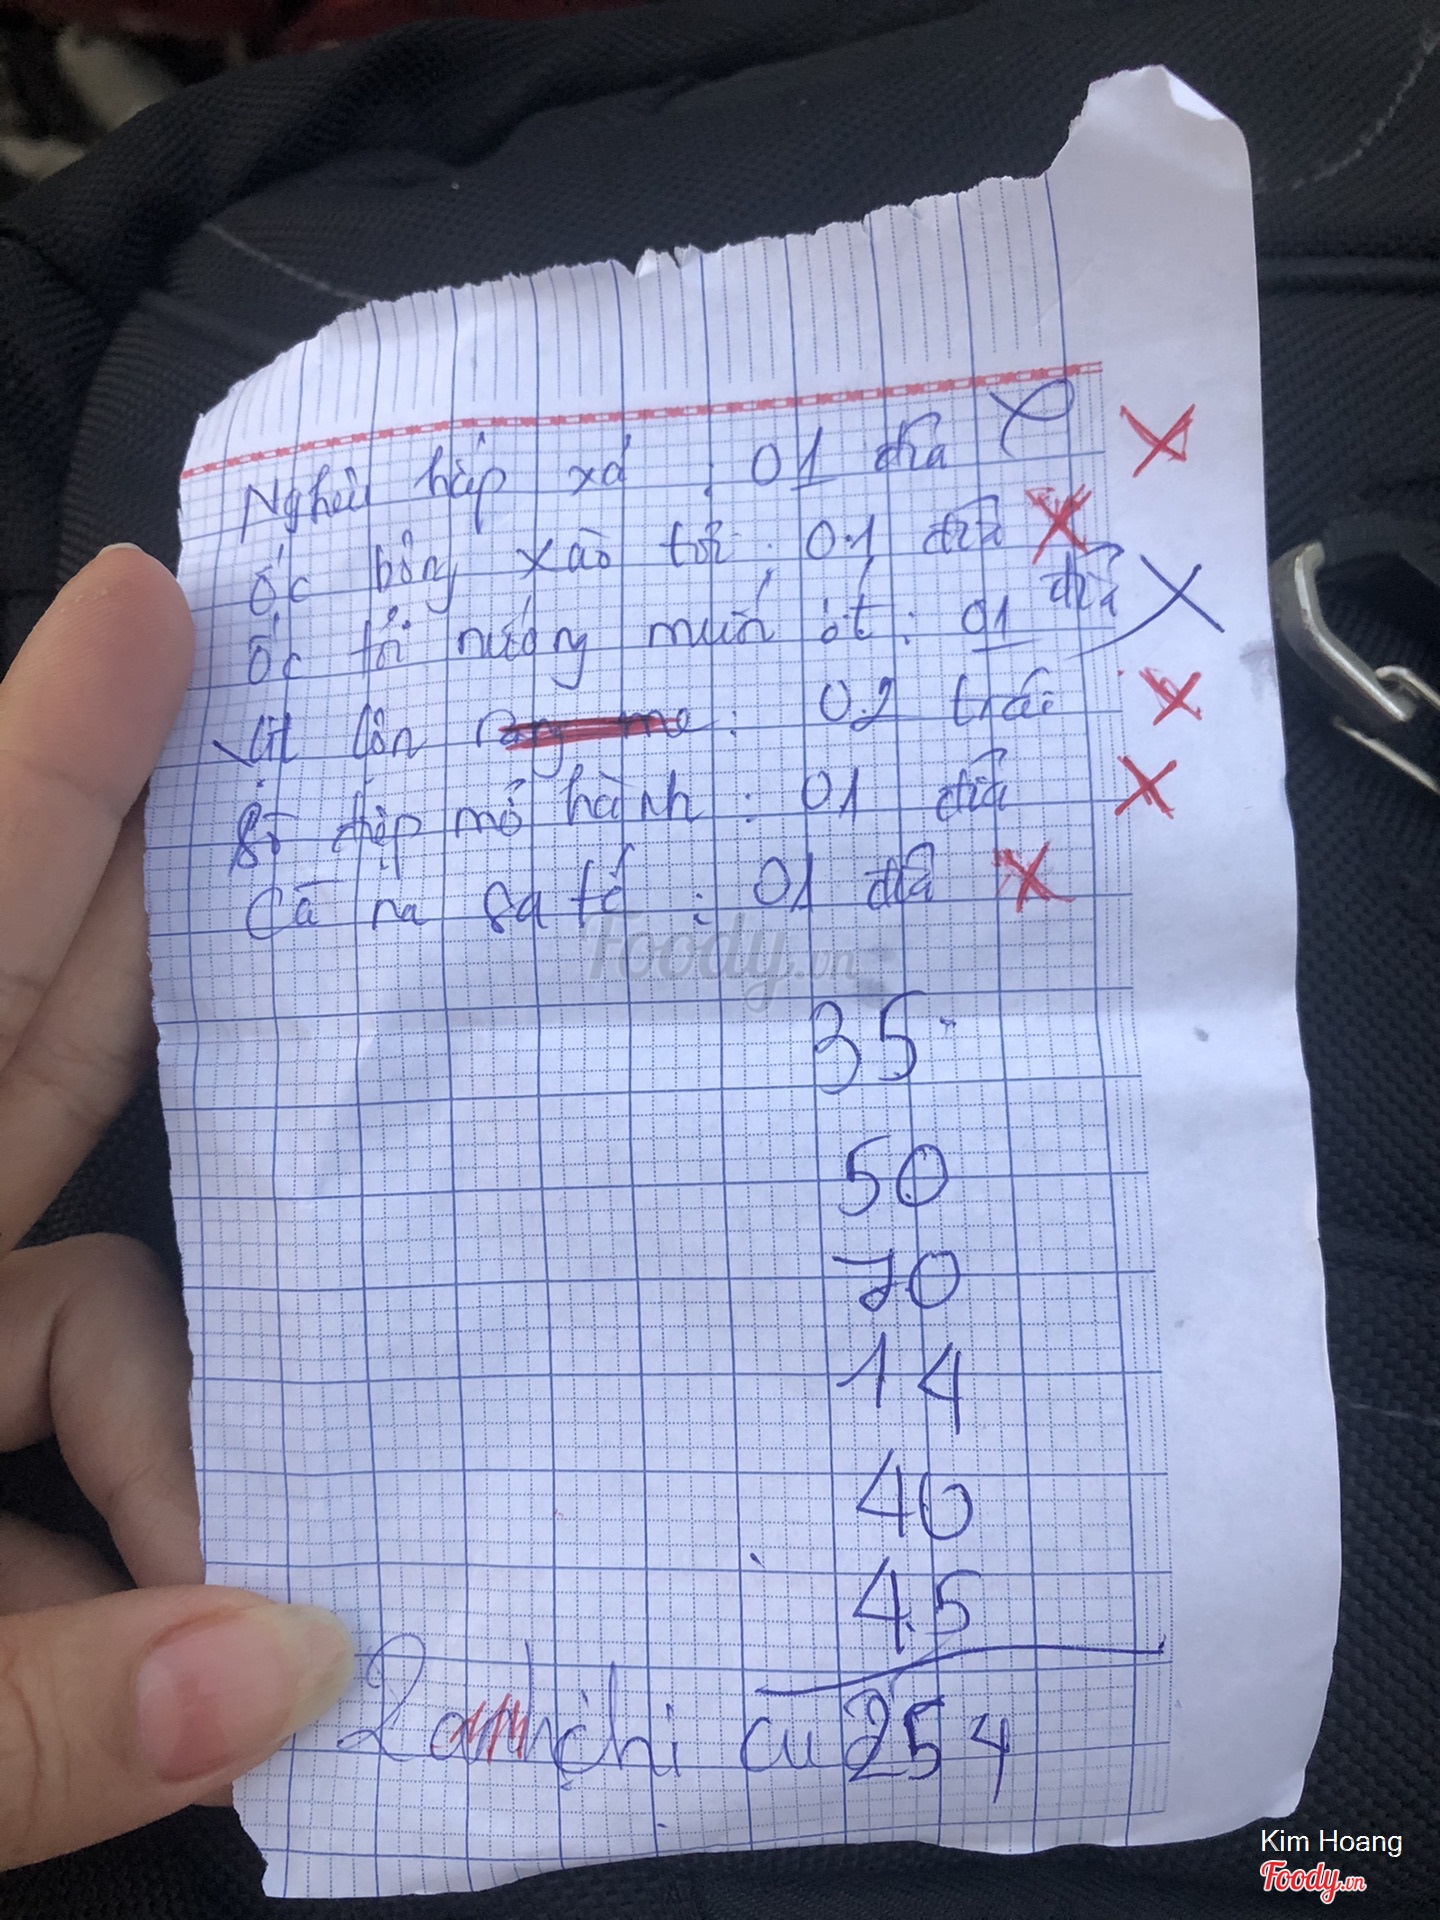 Nghêu hấp xả : 01 dĩa
Ốc bông xào tỏi : 01 dĩa
Ốc tỏi nướng muối ớt : 01 dĩa
Vịt lộn rang me : 02 trái
Sò điệp mỡ hành : 01 dĩa
Cà na sa tế : 01 dĩa
Foody.vn
35
50
70
14
40
45
2 chị cu 254
Kim Hoang
Foody.vn